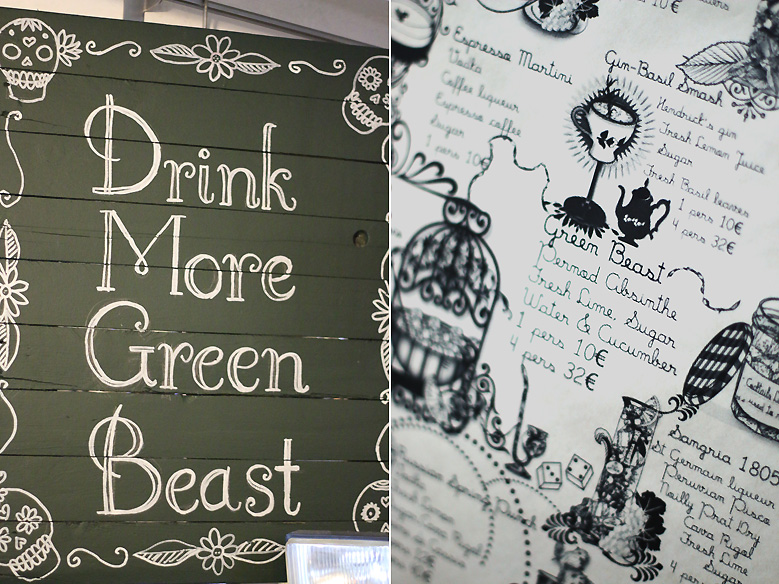 Drink
More
Green
Beast
10€
Espresso Martini
Vodka
Coffee liqueur
Espresso coffee
Sugar
1 pers 10€
Gin-Basil Smash
Hendrick's gin
Fresh Lemon Juice
Sugar
Fresh Basil leaves
1 pers 10€
4 pers 32€
Green Beast
Pernod Absinthe
Fresh Lime Sugar
Water & Cucumber
1 pers 10€
4 pers 32€
Sangria 1805
St Germain liqueur
Peruvian Pisco
Noilly Prat Dry
Cava Rigol
Fresh Lime
Sugar